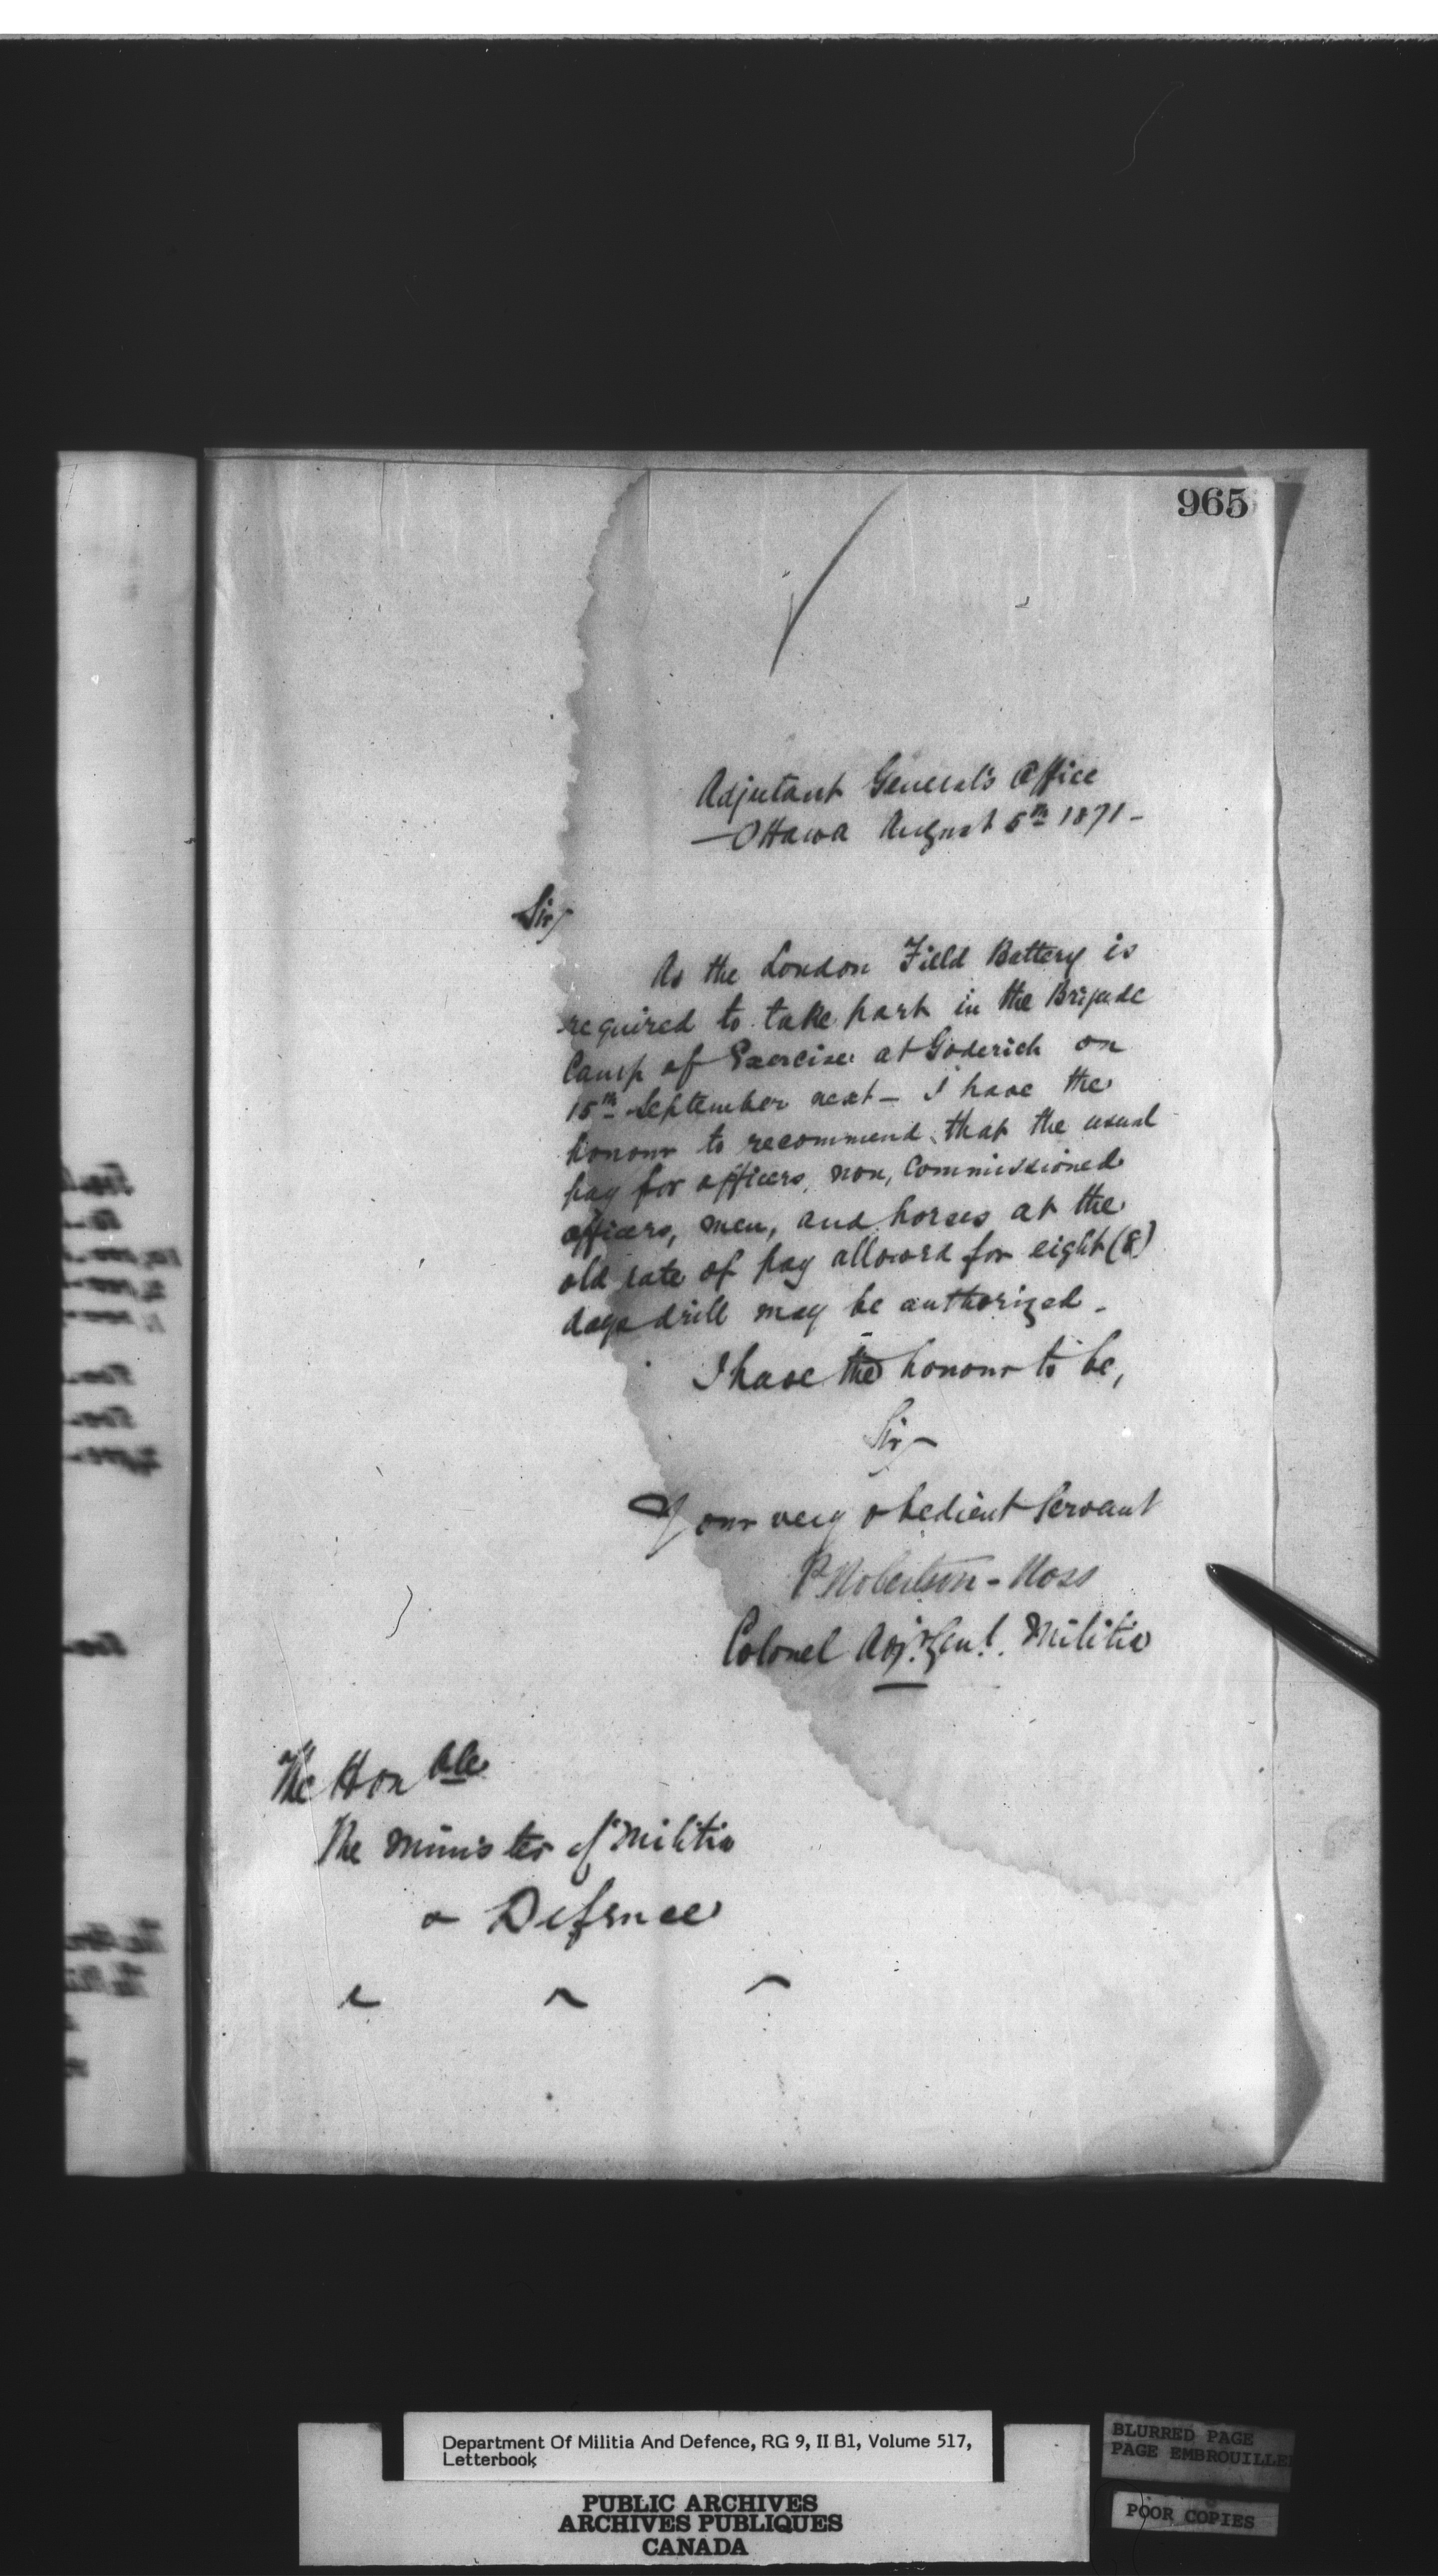 965
Adjutant General's Office
Ottawa August 5th 1871 -
Sir,
As the London Field Battery is
required to take part in the Brigade
Camp of Exercise at Goderich on
15th September next - I have the
honour to recommend, that the usual
pay for officers, non, Commissioned
officers, men, and horses at the
old rate of pay allowed for eight (8)
days drill may be authorized -
I have the honour to be,
Sir -
Your very obedient Servant
P Robertson - Ross
Colonel Adjt. Genl. Militia
The Honble
The Minister of Militia
& Defence
Department Of Militia And Defence, RG 9, II B1, Volume 517,
Letterbook
PUBLIC ARCHIVES
ARCHIVES PUBLIQUES
CANADA
BLURRED PAGE
PAGE EMBROUILLE
POOR COPIES